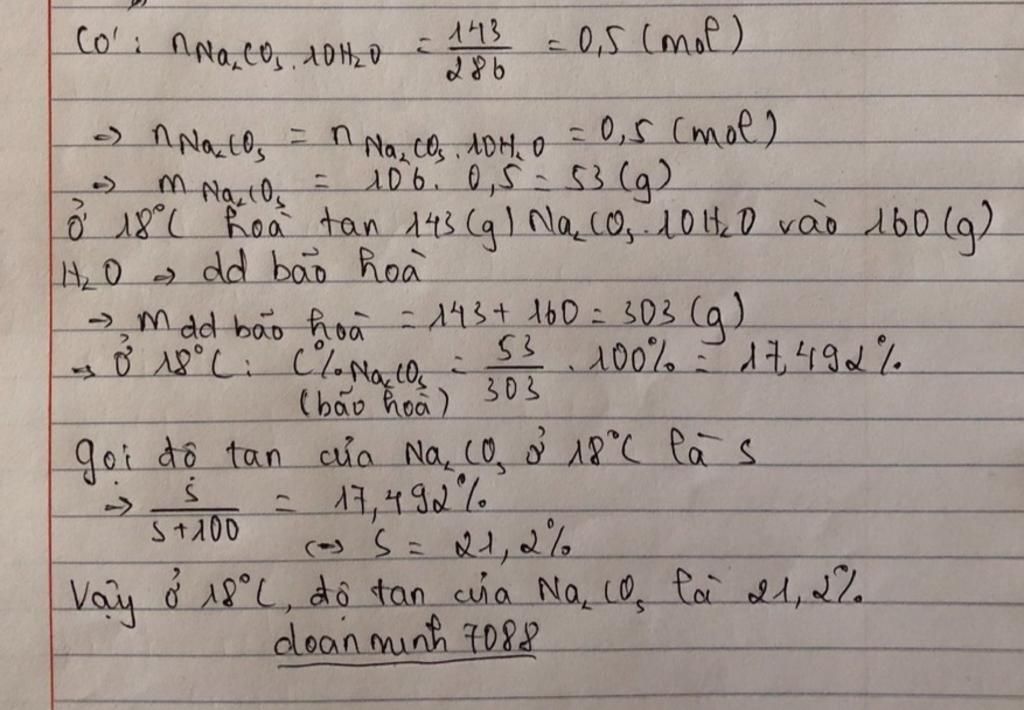 Có: nNa₂CO₃.10H₂O = 143/286 = 0,5 (mol)
→ nNa₂CO₃ = nNa₂CO₃.10H₂O = 0,5 (mol)
→ mNa₂CO₃ = 106. 0,5 = 53 (g)
Ở 18°C hoà tan 143(g) Na₂CO₃.10H₂O vào 160 (g)
H₂O → dd bão hoà
→ mdd bão hoà = 143 + 160 = 303 (g)
→ Ở 18°C: C%Na₂CO₃ = 53/303 . 100% = 17,492%
(bão hoà)
Gọi độ tan của Na₂CO₃ ở 18°C là s
→ s/s+100 = 17,492%
<=> S = 21,2%
Vậy ở 18°C, độ tan của Na₂CO₃ là 21,2%.
doanminh 7088